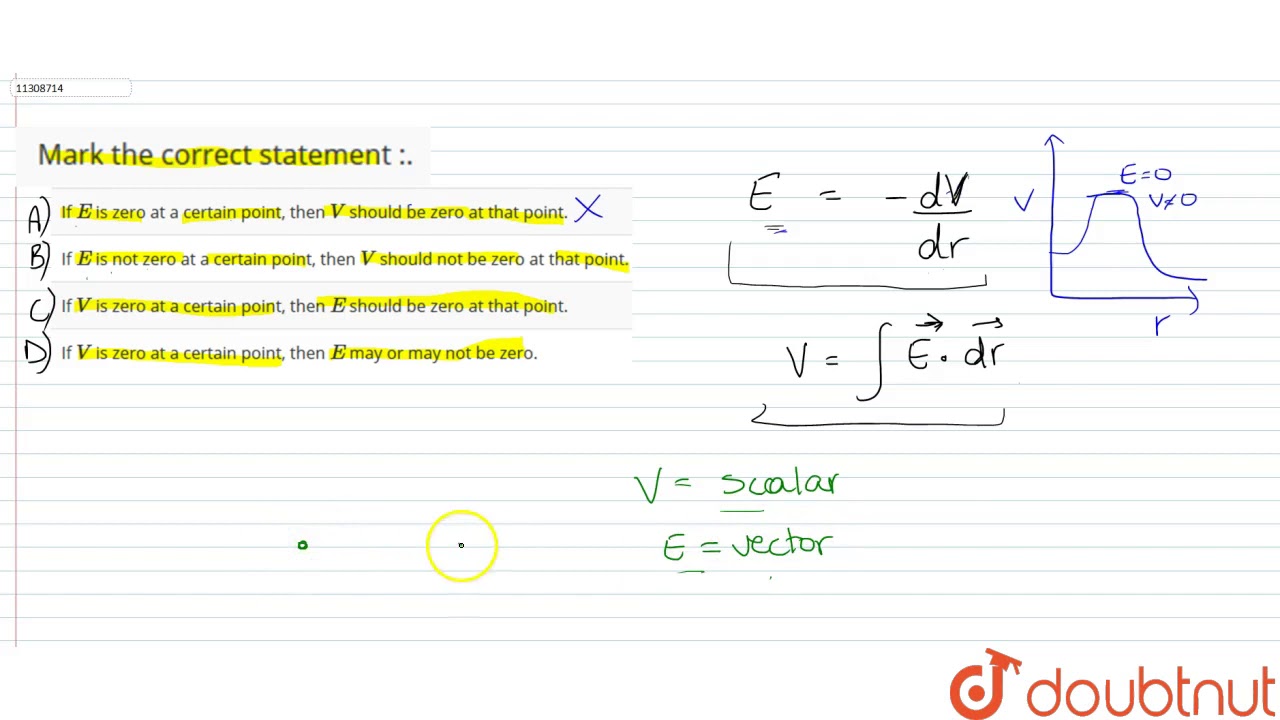 11308714
Mark the correct statement :.
A) If E is zero at a certain point, then V should be zero at that point. X
B) If E is not zero at a certain point, then V should not be zero at that point.
C) If V is zero at a certain point, then E should be zero at that point.
D) If V is zero at a certain point, then E may or may not be zero.
E = -dV/dr
V = ∫ E⃗ · dr⃗
V
E=0
V≠0
r
V = scalar
E = vector
doubtnut